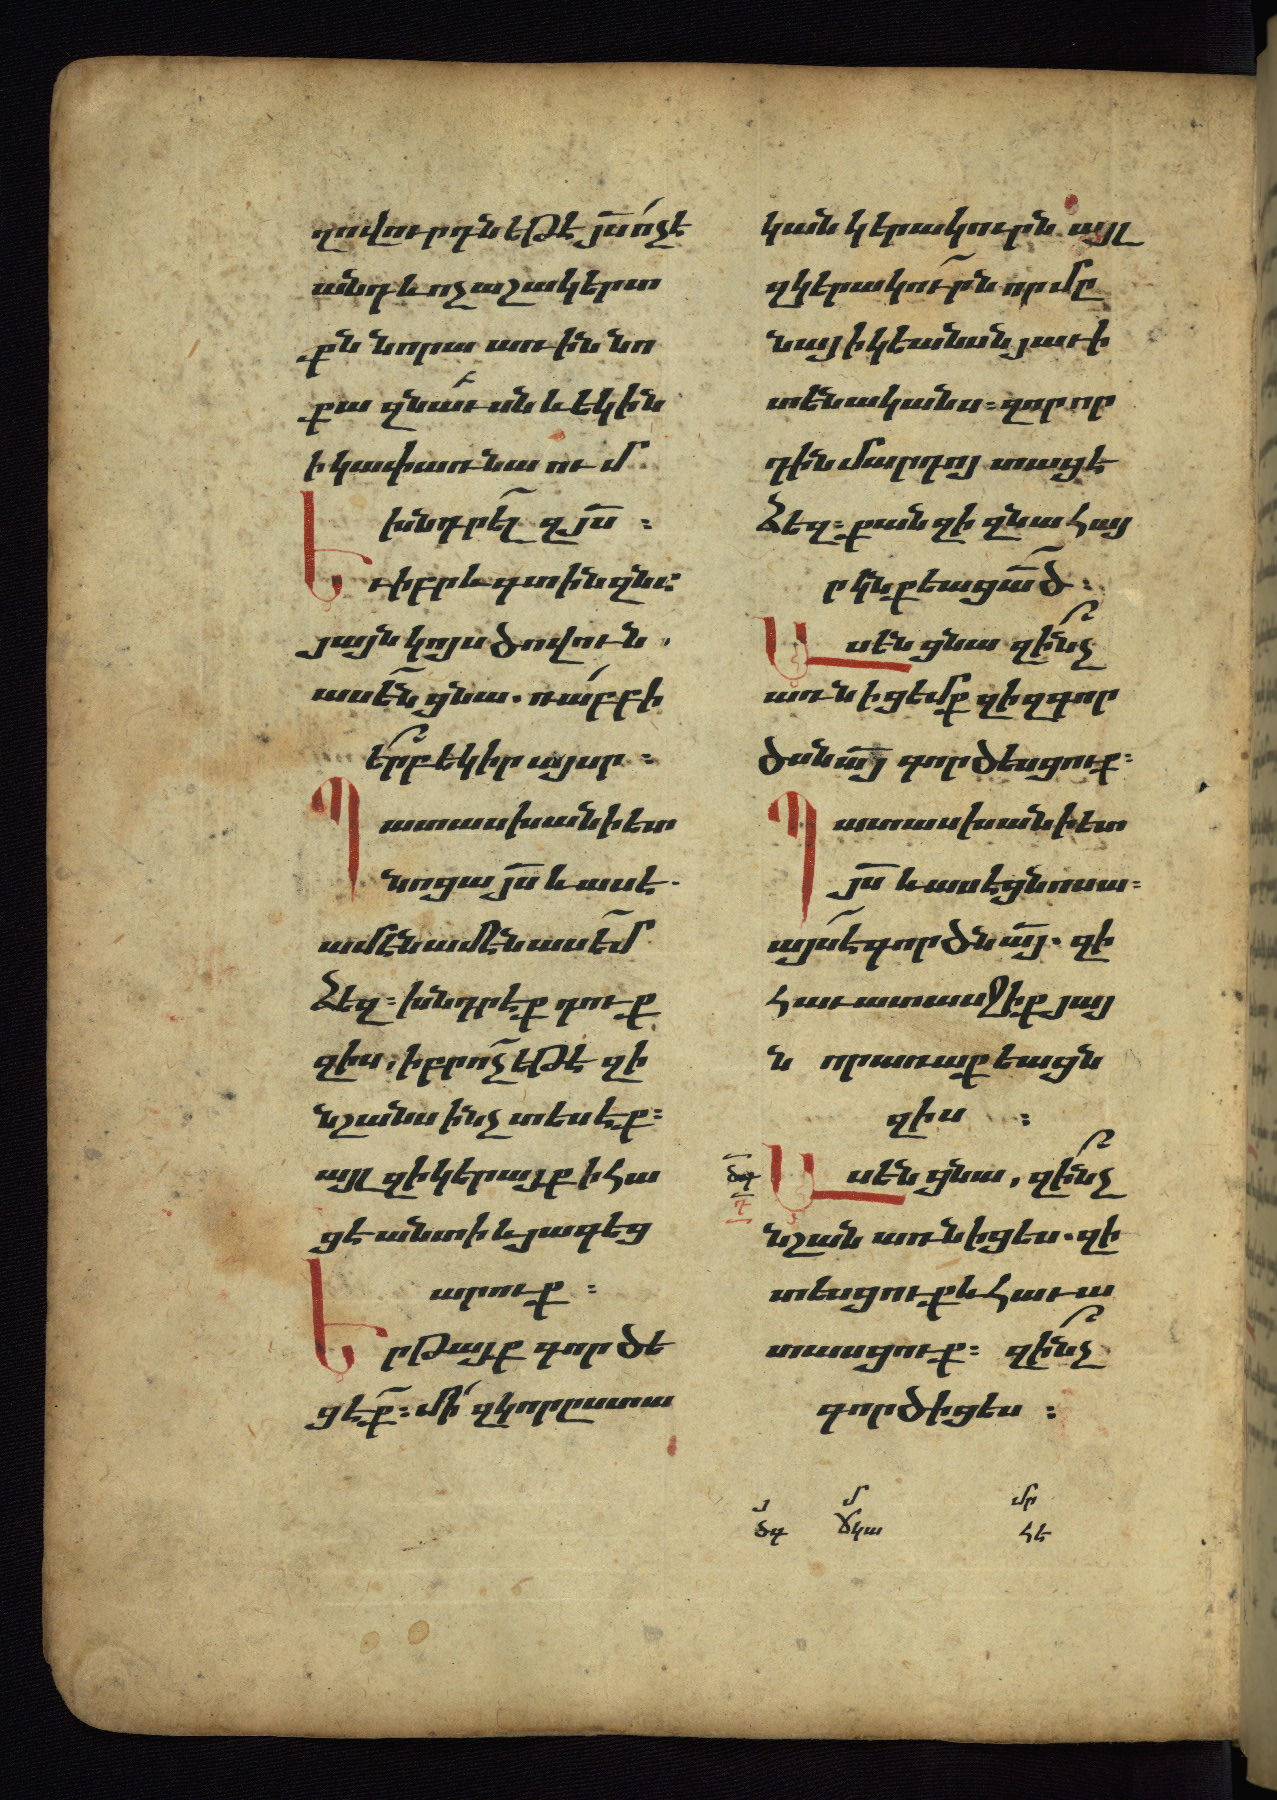 ղովուրդն եթէ յս ոչ է
անդ և ոչ աշակերտ
քն նորա առին նո
քա զնաւսն և եկին
ի կափառնաում
խնդրել զյս ։
Եւ իբրև գտին զնա
յայն կոյս ծովուն,
ասեն ցնա. ռաբբի
երբ եկիր այսր ։
Պատասխանի ետ
նոցա յս և ասէ.
ամէն ամէն ասեմ
ձեզ ։ խնդրէք դուք
զիս, իբր ոչ եթէ զի
նշանս ինչ տեսէք ։
այլ զի կերայք ի հա
ցէ անտի և յագեց
արուք ։
Երթայք գործե
ցէք ։ մի զկորըստա
կան կերակուրն այլ
զկերակուրն որ մը
նայ ի կեանսն յաւի
տենականս ։ զոր որ
դին մարդոյ տացէ
ձեզ ։ քանզի զնա հայ
ր կնքեաց ած ։
Ասեն ցնա զինչ
առնիցեմք զի զգոր
ծսն այ գործեսցուք ։
Պատասխանի ետ
յս և ասէ ցնոսա ։
այս է գործն այ. զի
հաւատասջիք յայ
ն որ առաքեացն
զիս ։
ծգ
դ
Ասեն ցնա, զինչ
նշան առնիցես. զի
տեսցուք և հաւա
տասցուք ։ զինչ
գործիցես ։
յ մ մր
ծգ ճկա հէ